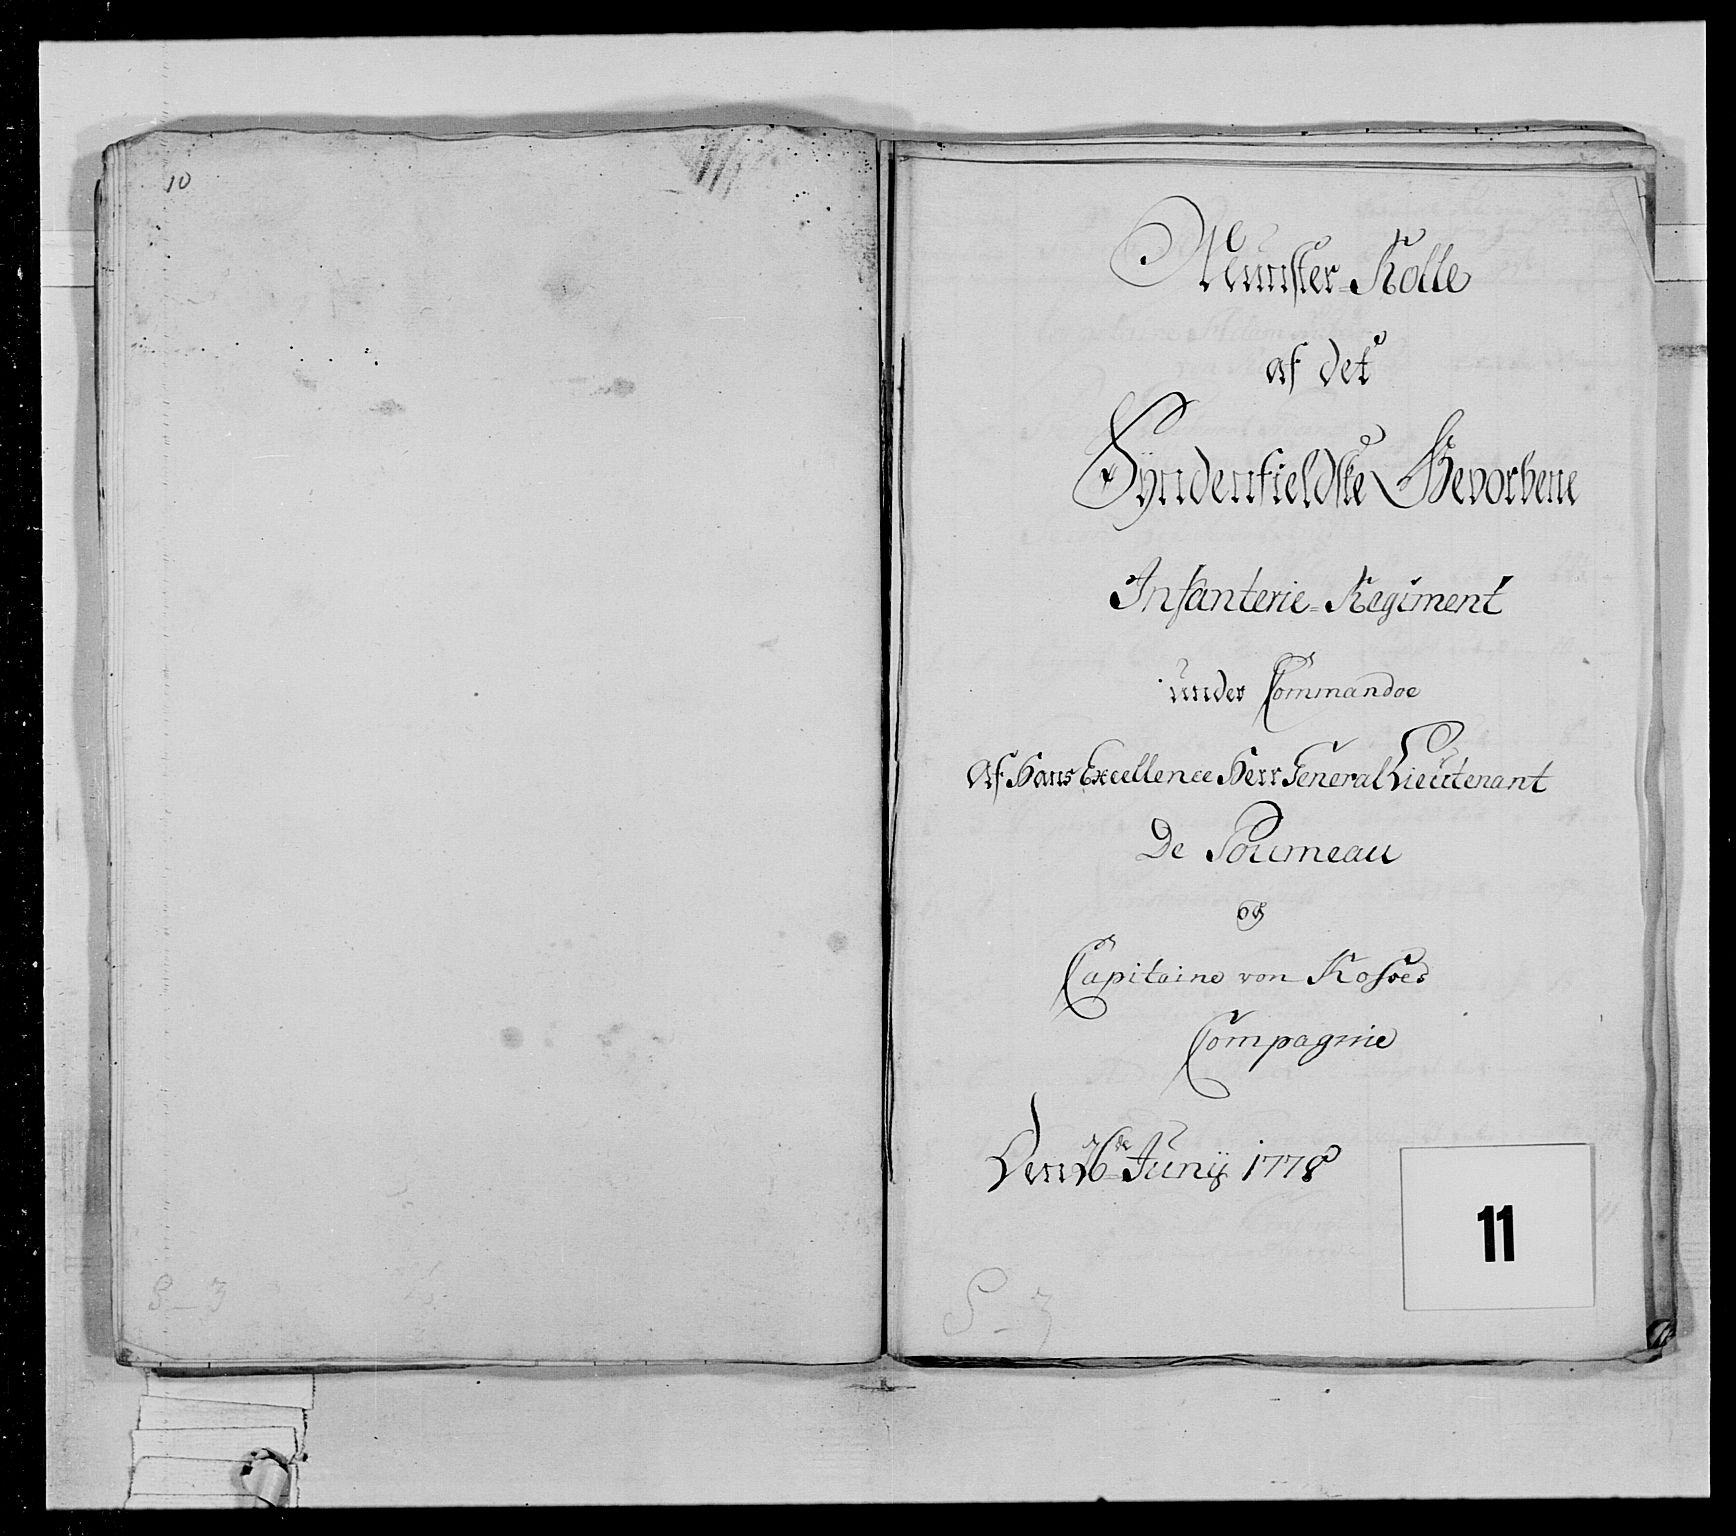 10
Munster-Rolle
af det
Syndenfieldske Gevorbene
Infanterie-Regiment
under Commandoe
Af Hans Excellence Herr General Lieutenant
De Poumeau
og
Capitaine von
Compagnie
Den 16de Junij 1778
11
S-3
S-3